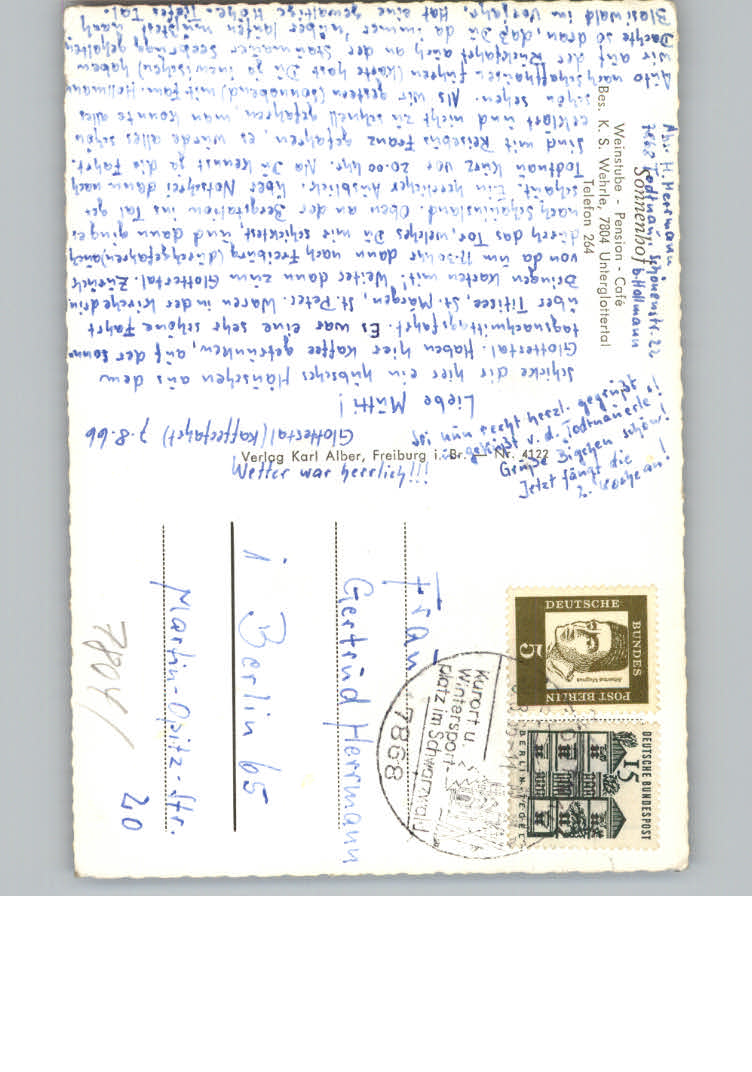 Glottertal (Kaffeefahrt) 7.8.66
Liebe Mutti!
schicke dir hier ein hübsches Häuschen aus dem
Glottertal. Haben hier Kaffee getrunken, auf der Sonn-
tagsnachmittagsfahrt. Es war eine sehr schöne Fahrt
über Titisee, St. Märgen, St. Peter. Waren in der Kirche drin
Bringen Karten mit. Weiter dann zum Glottertal. Zurück
von da um 17.30 Uhr dann nach Freiburg (durchgefahren) auch
durch das Tor, welches Du mir schicktest, und dann ging es
nach Schauinsland. Oben an der Bergstation ins Tal ge-
schaut. Ein herrlicher Ausblick. Über Notschrei dann nach
Todtnau kurz vor 20.00 Uhr. Na Du kennst ja die Fahrt.
Sind mit Reisebüro Franz gefahren, es wurde alles schön
erklärt und nicht zu schnell gefahren, man konnte alles
schön sehen. Als wir gestern (Sonnabend) mit Fam. Hollmann
Auto nach Schaffhausen fuhren (Karte hast Du ja inzwischen) haben
wir auf der Rückfahrt auch an der Staumauer Seebrugg gehalten
Dachte so dran, daß Du da immer rüber laufen mußtest nach
Blasiwald im Vorjahr. Hat eine gewaltige Höhe. Tiefes Tal.
Wetter war herrlich!!!
Sei nun recht herzl. gegrüßt
u. geküßt v. d. Todtnauerle!
Grüße Bigchen schön!
Jetzt fängt die
2. Woche an!
Abs. H. Herrmann
7868 Todtnau, Schönenstr. 22
b. Hollmann
Sonnenhof
Weinstube - Pension - Café
Bes. K. S. Wehrle, 7804 Unterglottertal
Telefon 264
Verlag Karl Alber, Freiburg i. Br. — Nr. 4122
Frau
Gertrud Herrmann
1 Berlin 65
Martin-Opitz-Str.
20
7804
7868
Kurort u.
Wintersport-
platz im Schwarzwald
DEUTSCHE
BUNDES
POST BERLIN
5
Albertus Magnus
DEUTSCHE BUNDESPOST
15
BERLIN TEGEL